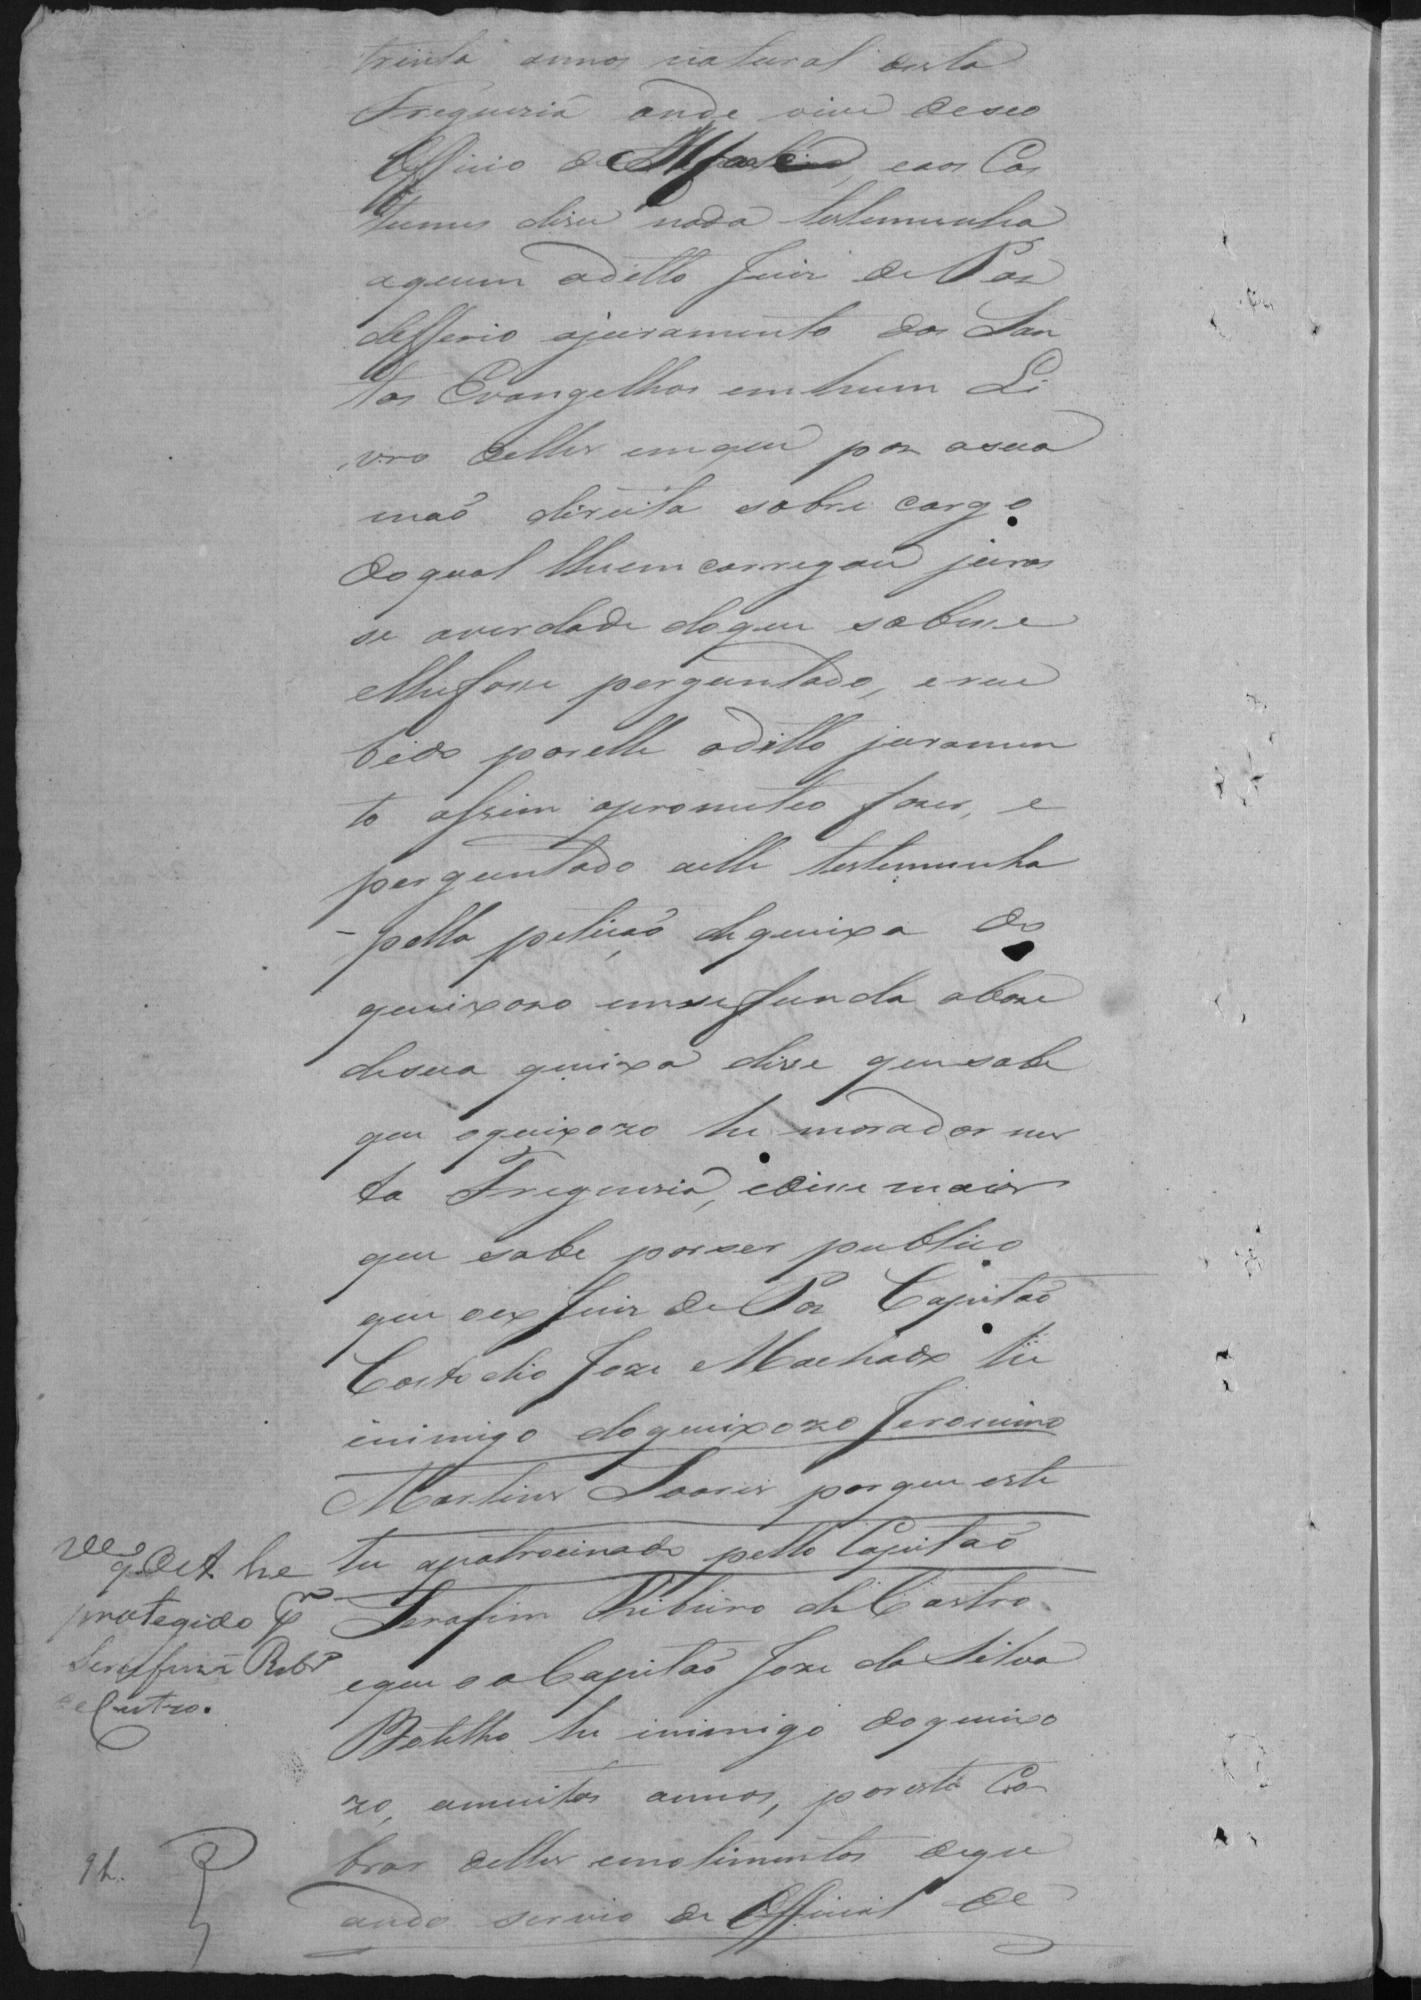 trinta annos natural desta
Freguezia onde vive deseo
Officio de Alfaiate, eaos Cos
tumes dise nada testemunha
aquem oditto Juis de Pas
defferio ojuramento dos San
tos Evangelhos emhum Li
vro delles emque pos asua
maõ direita sobre cargo
doqual lheemcarregou juras
se averdade doque soubese
elhefose perguntado, erece
bido porelle oditto juramen
to assim oprometeo fazer, e
perguntado aelle testemunha
pella petiçaõ dequeixa do
queixozo emsefunda abase
desua queixa dise quesabe
que oqueixozo he morador nes
ta Freguezia, edise mais
que sabe porser publico
que oex Juis de Pas Capitaõ
Costodio Joze Machado he
inimigo doqueixozo Jeronimo
Martins Soares porque este
he apatrocinado pello Capitaõ
Serafim Ribeiro de Castro
eque o Capitaõ Joze da Silva
Botelho he inimigo doqueixo
zo, amuitos annos, poreste Co
brar delles emolimentos dequ
ando servio de Official de
q. este he
protegido pr
Serafim Ribro
de Castro.